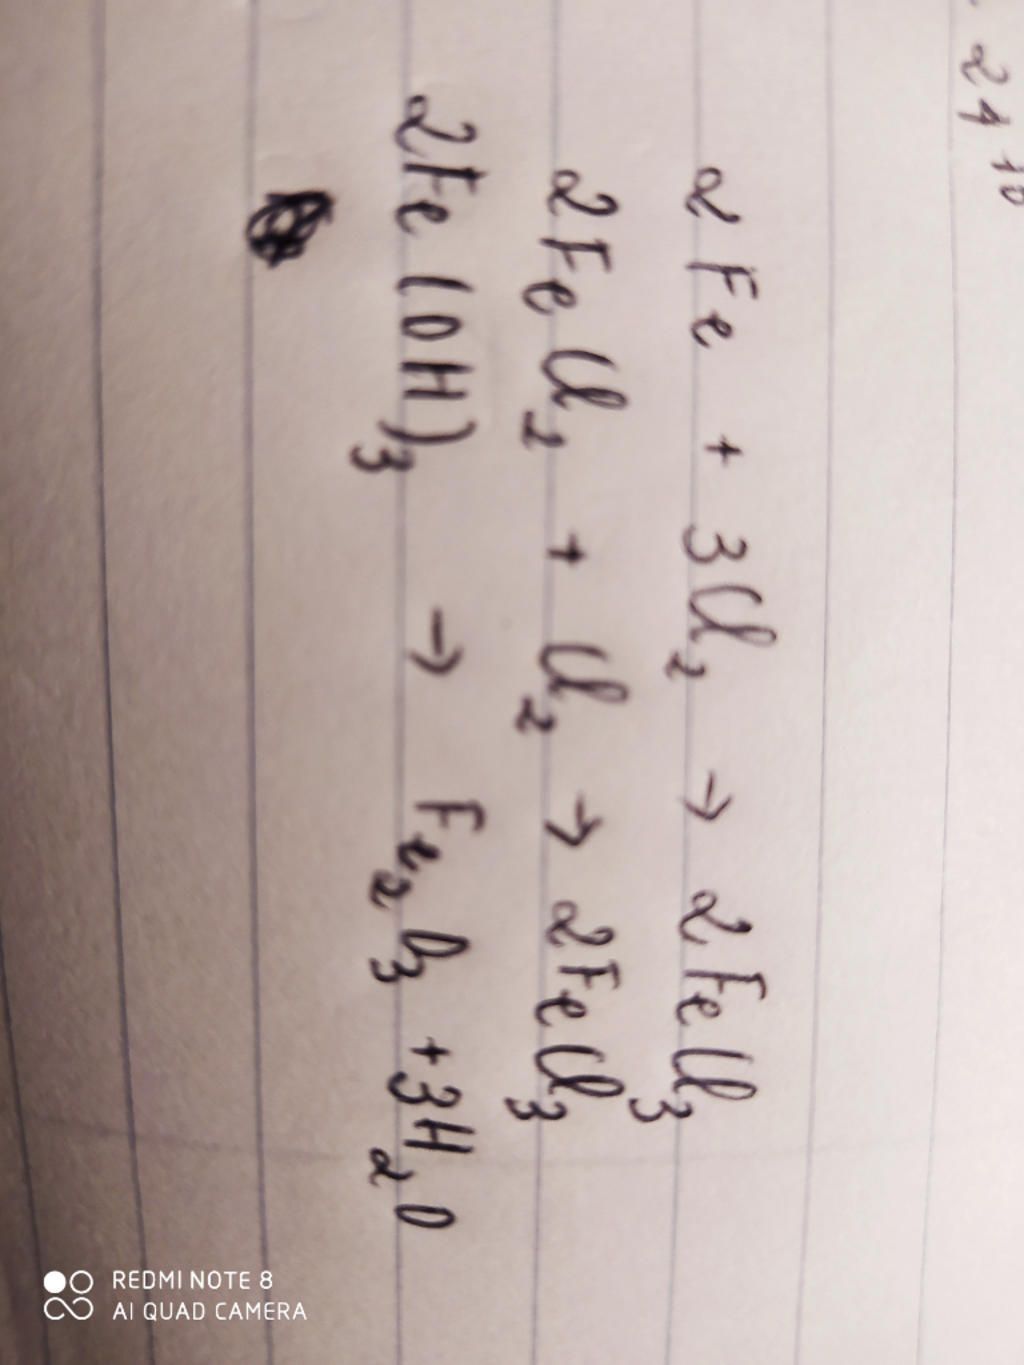 2Fe + 3Cl₂ → 2FeCl₃
2FeCl₂ + Cl₂ → 2FeCl₃
2Fe(OH)₃ → Fe₂O₃ + 3H₂O
REDMI NOTE 8
AI QUAD CAMERA